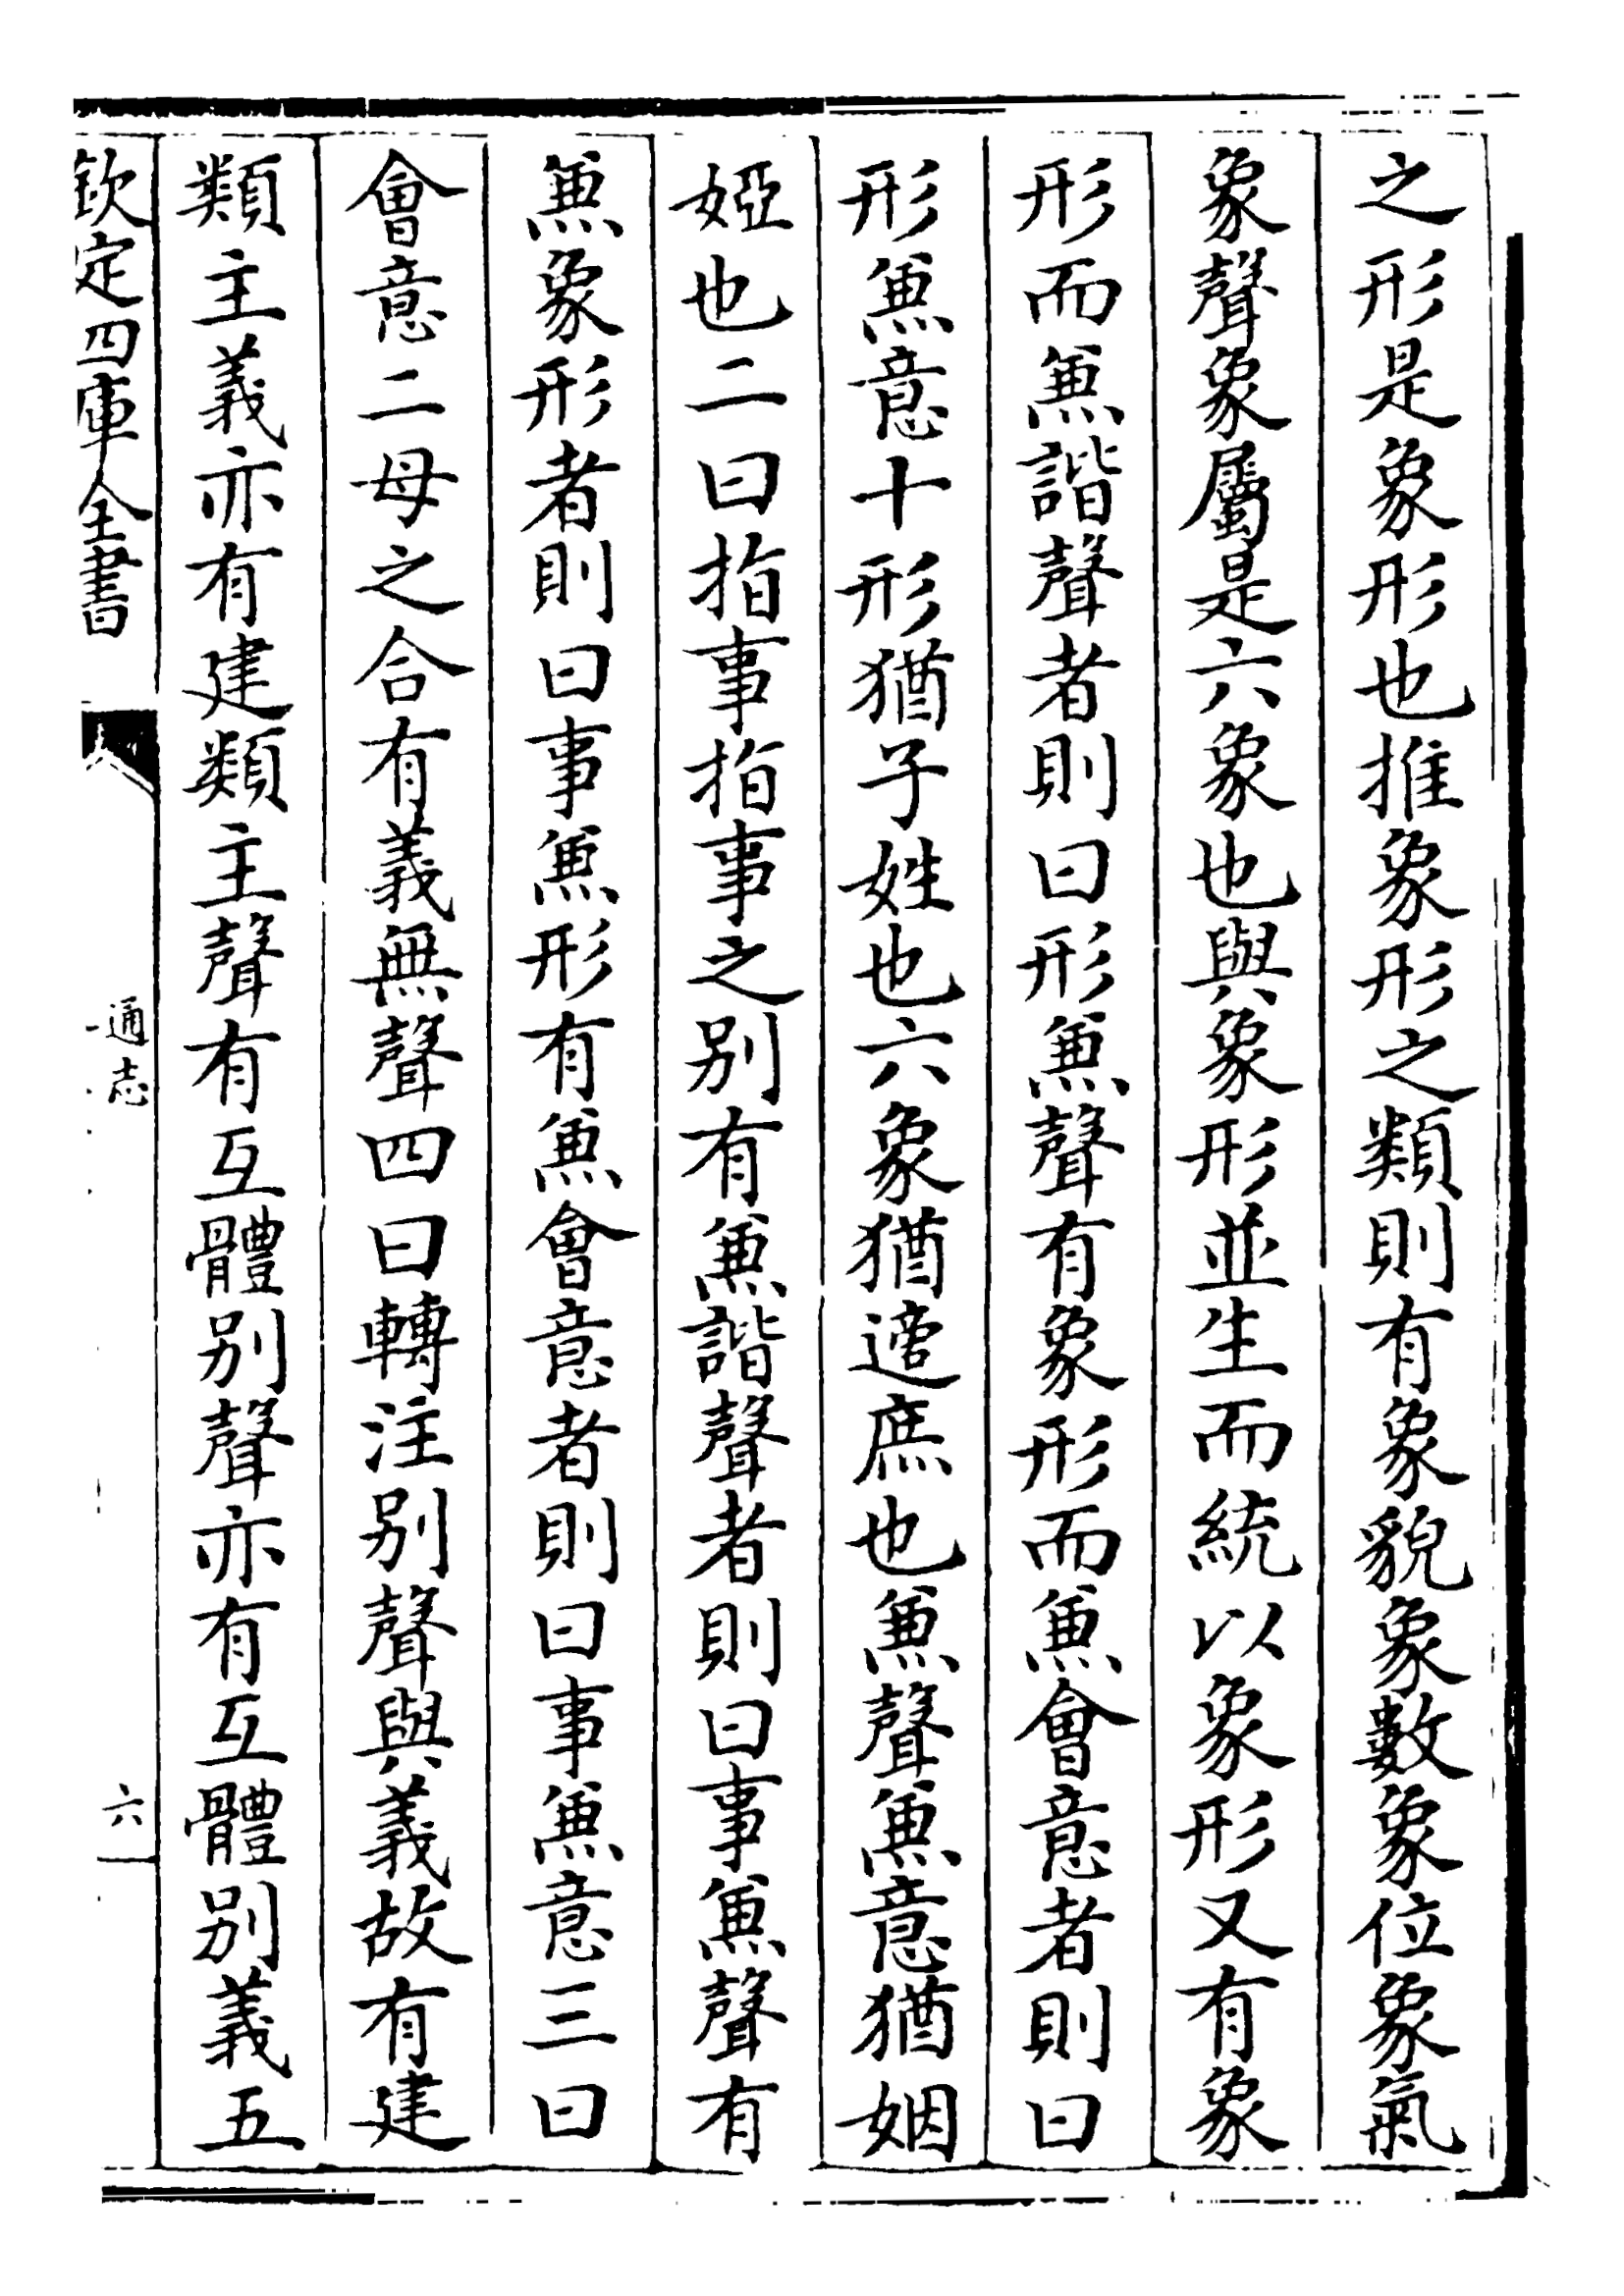 之形是象形也推象形之類則有象貌象數象位象氣
象聲象屬是六象也與象形並生而統以象形又有象
形而兼諧聲者則曰形兼聲有象形而兼會意者則曰
形兼意十形猶子姓也六象猶適庶也兼聲兼意猶姻
婭也二曰指事指事之别有兼諧聲者則曰事兼聲有
兼象形者則曰事兼形有兼會意者則曰事兼意三曰
會意二母之合有義無聲四曰轉注别聲與義故有建
類主義亦有建類主聲有互體别聲亦有互體别義五
欽定四庫全書
通志
六